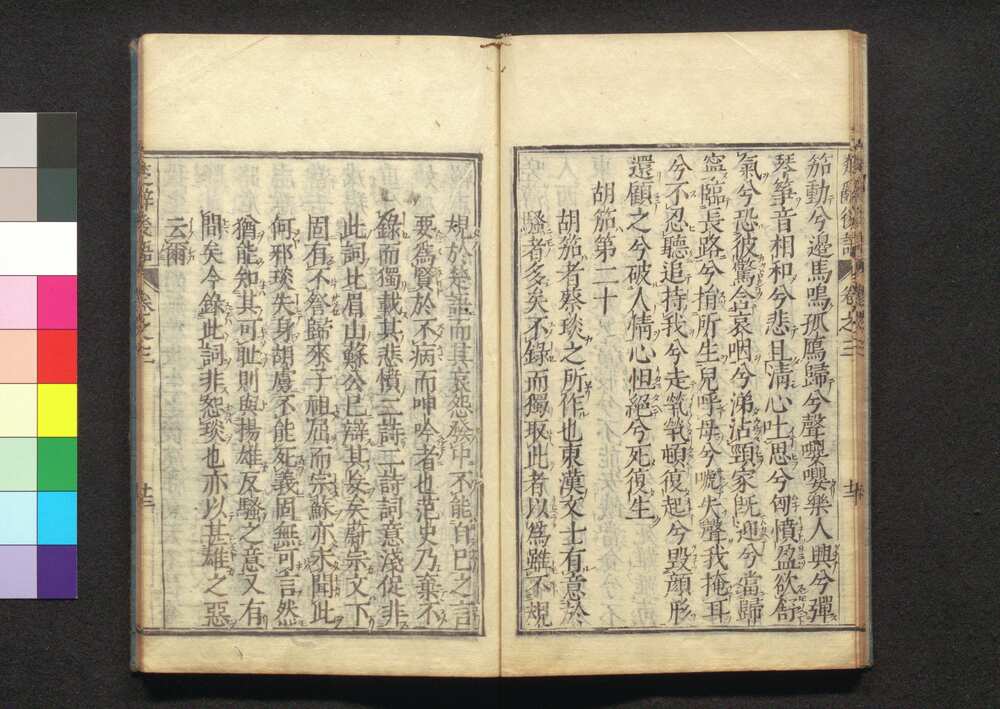 笳動兮邊馬鳴孤鴈歸兮聲嚶嚶樂人興兮彈
琴箏音相和兮悲且淸心吐思兮匈憤盈欲舒
氣兮恐彼驚含哀咽兮涕沾頸家旣迎兮當歸
寧臨長路兮捐所生兒呼母兮號失聲我掩耳
兮不忍聽追持我兮走煢煢頓復起兮毀顏形
還顧之兮破人情心怛絕兮死復生
胡笳第二十
胡笳者蔡琰之所作也東漢文士有意於
騷者多矣不錄而獨取此者以爲雖不規
規於楚語而其哀怨發中不能自已之言
要爲賢於不病而呻吟者也范史乃棄不
錄而獨載其悲憤二詩二詩詞意淺促非
此詞比眉山蘇公已辯其妄矣蔚宗文下
固有不察歸來子祖屈而宗蘇亦未聞此
何邪琰失身胡虜不能死義固無可言然
猶能知其可恥則與揚雄反騷之意又有
間矣今錄此詞非恕琰也亦以甚雄之惡
云爾
楚辭後語 卷之三